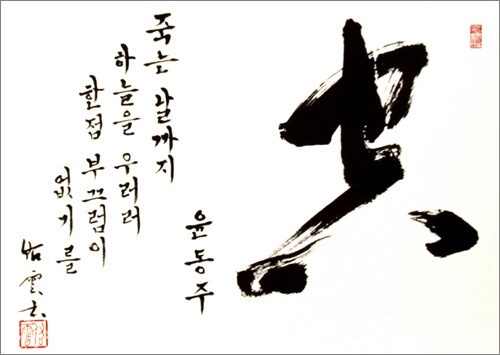 죽는 날까지
하늘을 우러러
한점 부끄럼이
없기를
윤동주